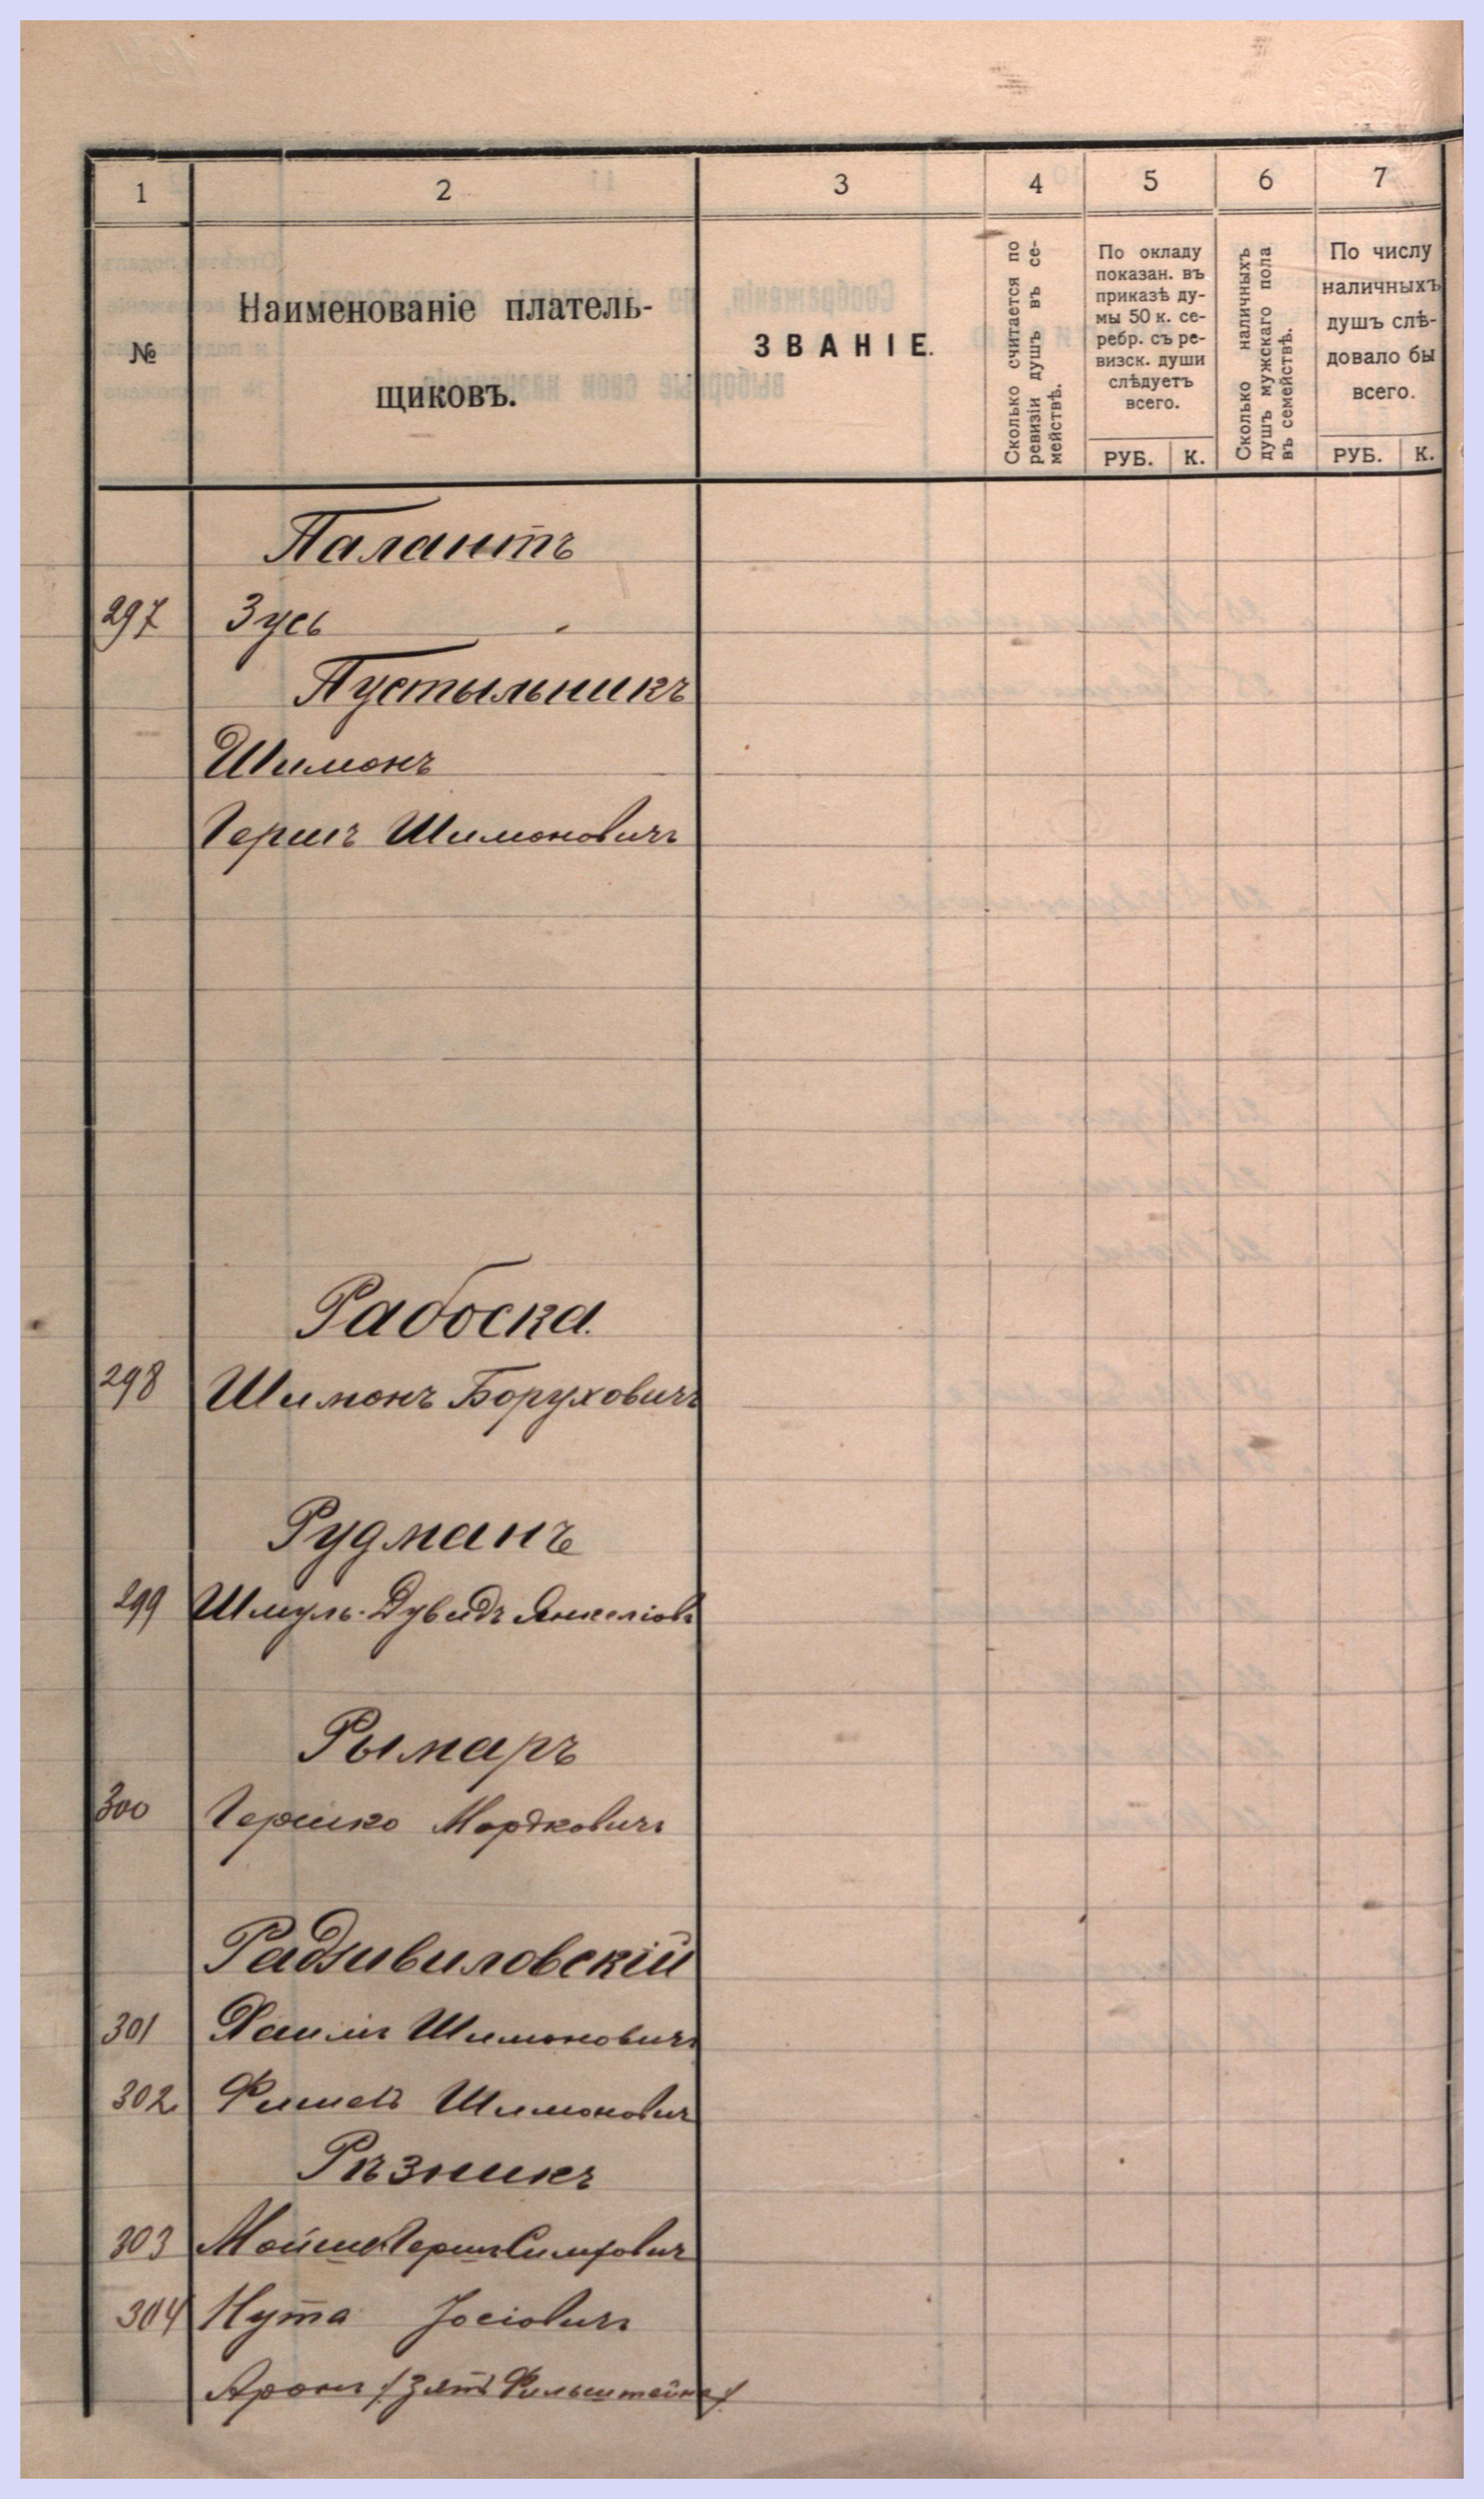 1 2 3 4 5 6 7
№
Наименованіе платель-
щиковъ.
ЗВАНІЕ.
Сколько считается по
ревизіи душъ въ се-
мействѣ.
По окладу
показан. въ
приказѣ ду-
мы 50 к. се-
ребр. съ ре-
визск. души
слѣдуетъ
всего.
РУБ. К.
Сколько наличныхъ
душъ мужскаго пола
въ семействѣ.
По числу
наличныхъ
душъ слѣ-
довало бы
всего.
РУБ. К.
Палантъ
297 Зусь
Пустыльникъ
Шимонъ
Гершъ Шимоновичъ
Рабоска.
298 Шимонъ Боруховичъ
Рудманъ
299 Шмуль-Дувидъ Янкеліовъ
Рымаръ
300 Гершко Мордковичъ
Радзивиловскій
301 Хаимъ Шимоновичъ
302 Фишель Шимоновичъ
Рѣзникъ
303 Мойше Гершъ Симховичъ
304 Нута Іосіовичъ
Аронъ /зять Фильштейна/